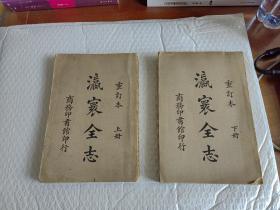 重訂本
上冊
瀛寰全志
商務印書館印行
重訂本
下冊
瀛寰全志
商務印書館印行